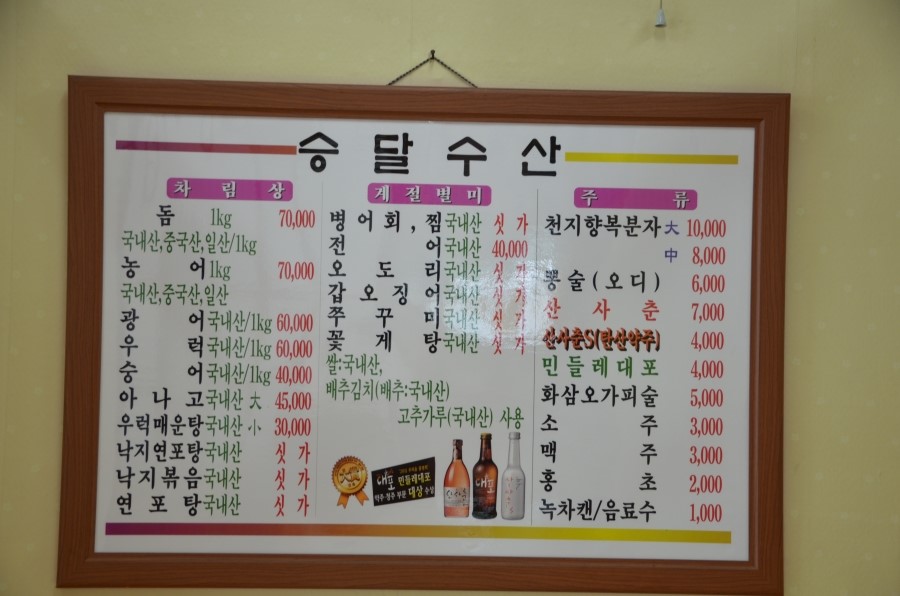 승달수산
차림상
돔 1kg 70,000
국내산,중국산,일산/1kg
농어 1kg 70,000
국내산,중국산,일산
광어 국내산/1kg 60,000
우럭 국내산/1kg 60,000
숭어 국내산/1kg 40,000
아나고 국내산 大 45,000
우럭매운탕 국내산 小 30,000
낙지연포탕 국내산 싯가
낙지볶음 국내산 싯가
연포탕 국내산 싯가
계절별미
병어회,찜 국내산 싯가
전어 국내산 40,000
오도리 국내산 싯가
갑오징어 국내산 싯가
쭈꾸미 국내산 싯가
꽃게탕 국내산 싯가
쌀:국내산,
배추김치(배추:국내산)
고추가루(국내산) 사용
대포 민들레대포
약주·청주 부문 대상 수상
산사춘
대포
주류
천지향복분자 大 10,000
中 8,000
뽕술(오디) 6,000
산사춘 7,000
산사춘S(탄산약주) 4,000
민들레대포 4,000
화삼오가피술 5,000
소주 3,000
맥주 3,000
홍초 2,000
녹차캔/음료수 1,000